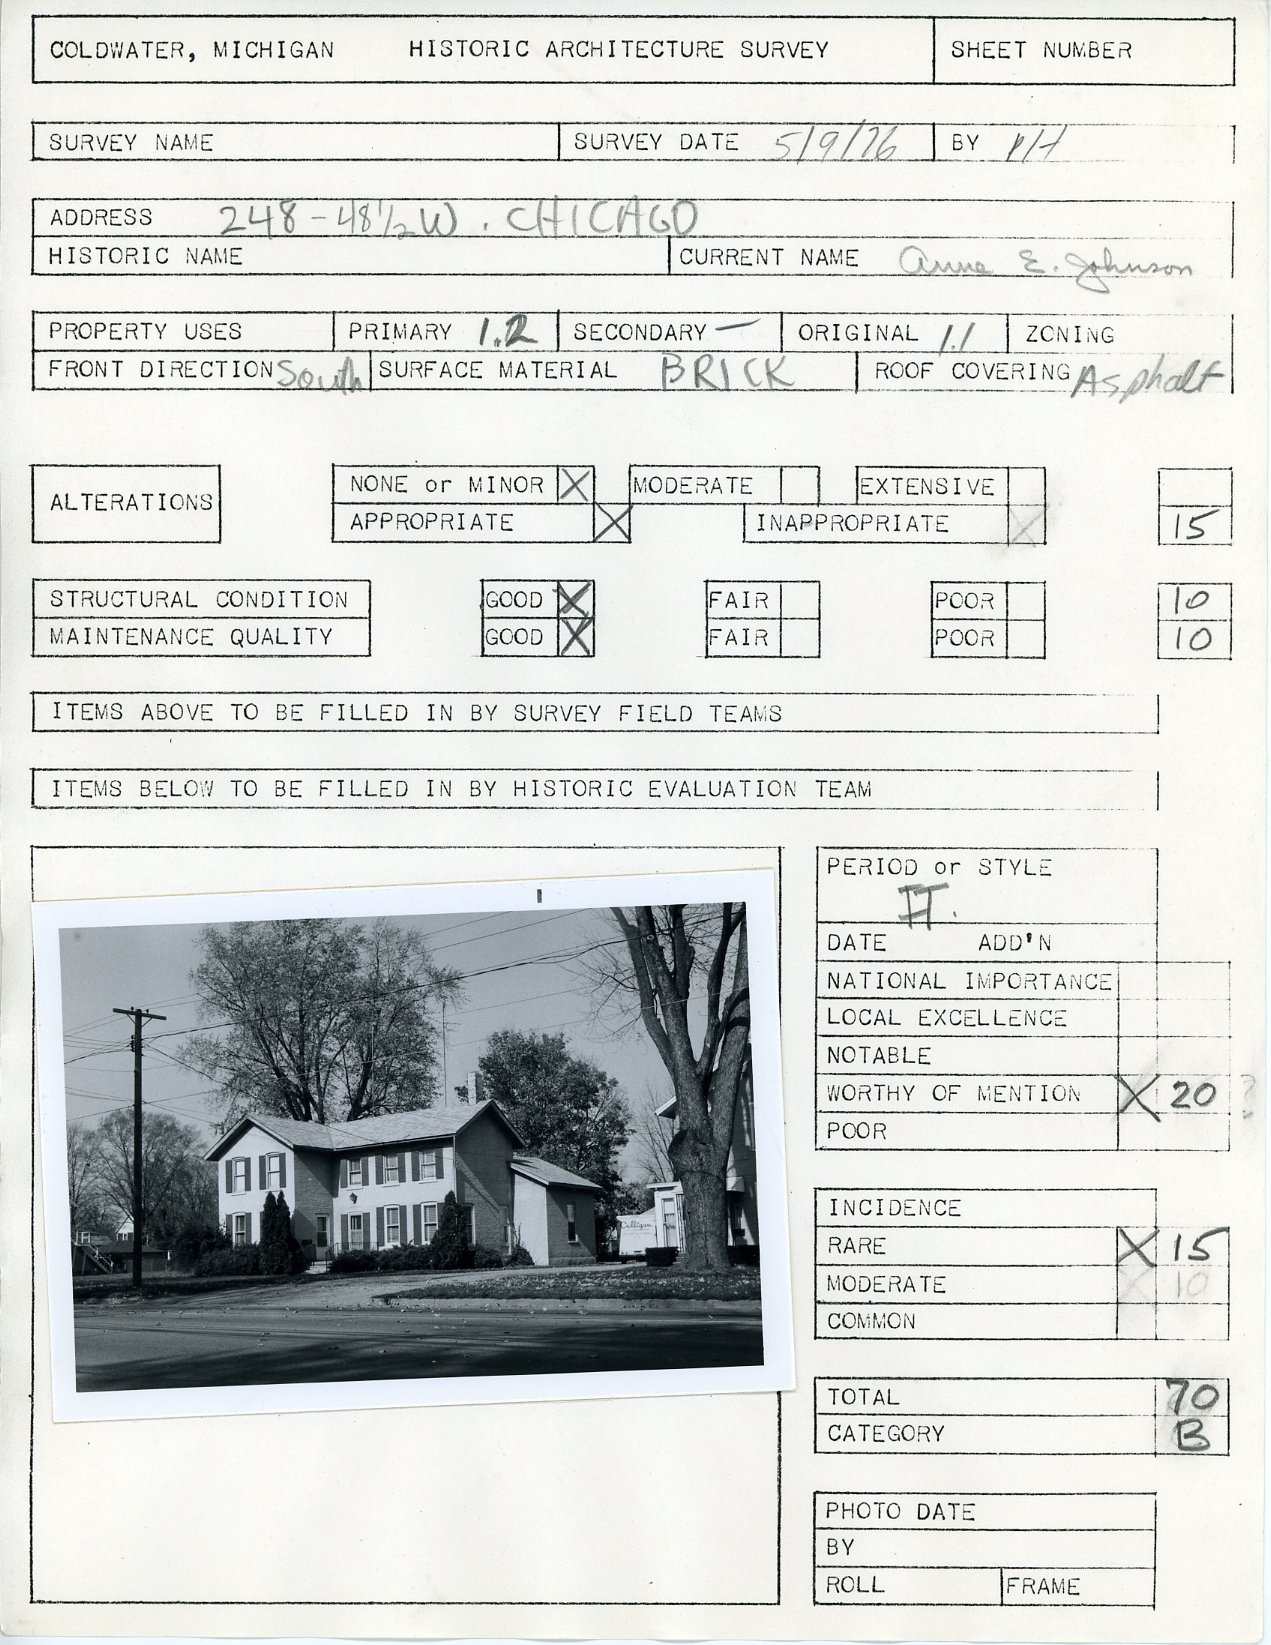 COLDWATER, MICHIGAN HISTORIC ARCHITECTURE SURVEY SHEET NUMBER
SURVEY NAME SURVEY DATE 5/9/76 BY PH
ADDRESS 248-48½ W. CHICAGO
HISTORIC NAME CURRENT NAME Anne E. Johnson
PROPERTY USES PRIMARY 1.2 SECONDARY — ORIGINAL 1.1 ZONING
FRONT DIRECTION South SURFACE MATERIAL BRICK ROOF COVERING Asphalt
ALTERATIONS
NONE or MINOR X MODERATE EXTENSIVE
APPROPRIATE X INAPPROPRIATE X 15
STRUCTURAL CONDITION GOOD X FAIR POOR 10
MAINTENANCE QUALITY GOOD X FAIR POOR 10
ITEMS ABOVE TO BE FILLED IN BY SURVEY FIELD TEAMS
ITEMS BELOW TO BE FILLED IN BY HISTORIC EVALUATION TEAM
Culligan
PERIOD or STYLE
IT.
DATE ADD'N
NATIONAL IMPORTANCE
LOCAL EXCELLENCE
NOTABLE
WORTHY OF MENTION X 20 ?
POOR
INCIDENCE
RARE X 15
MODERATE X 10
COMMON
TOTAL 70
CATEGORY B
PHOTO DATE
BY
ROLL FRAME